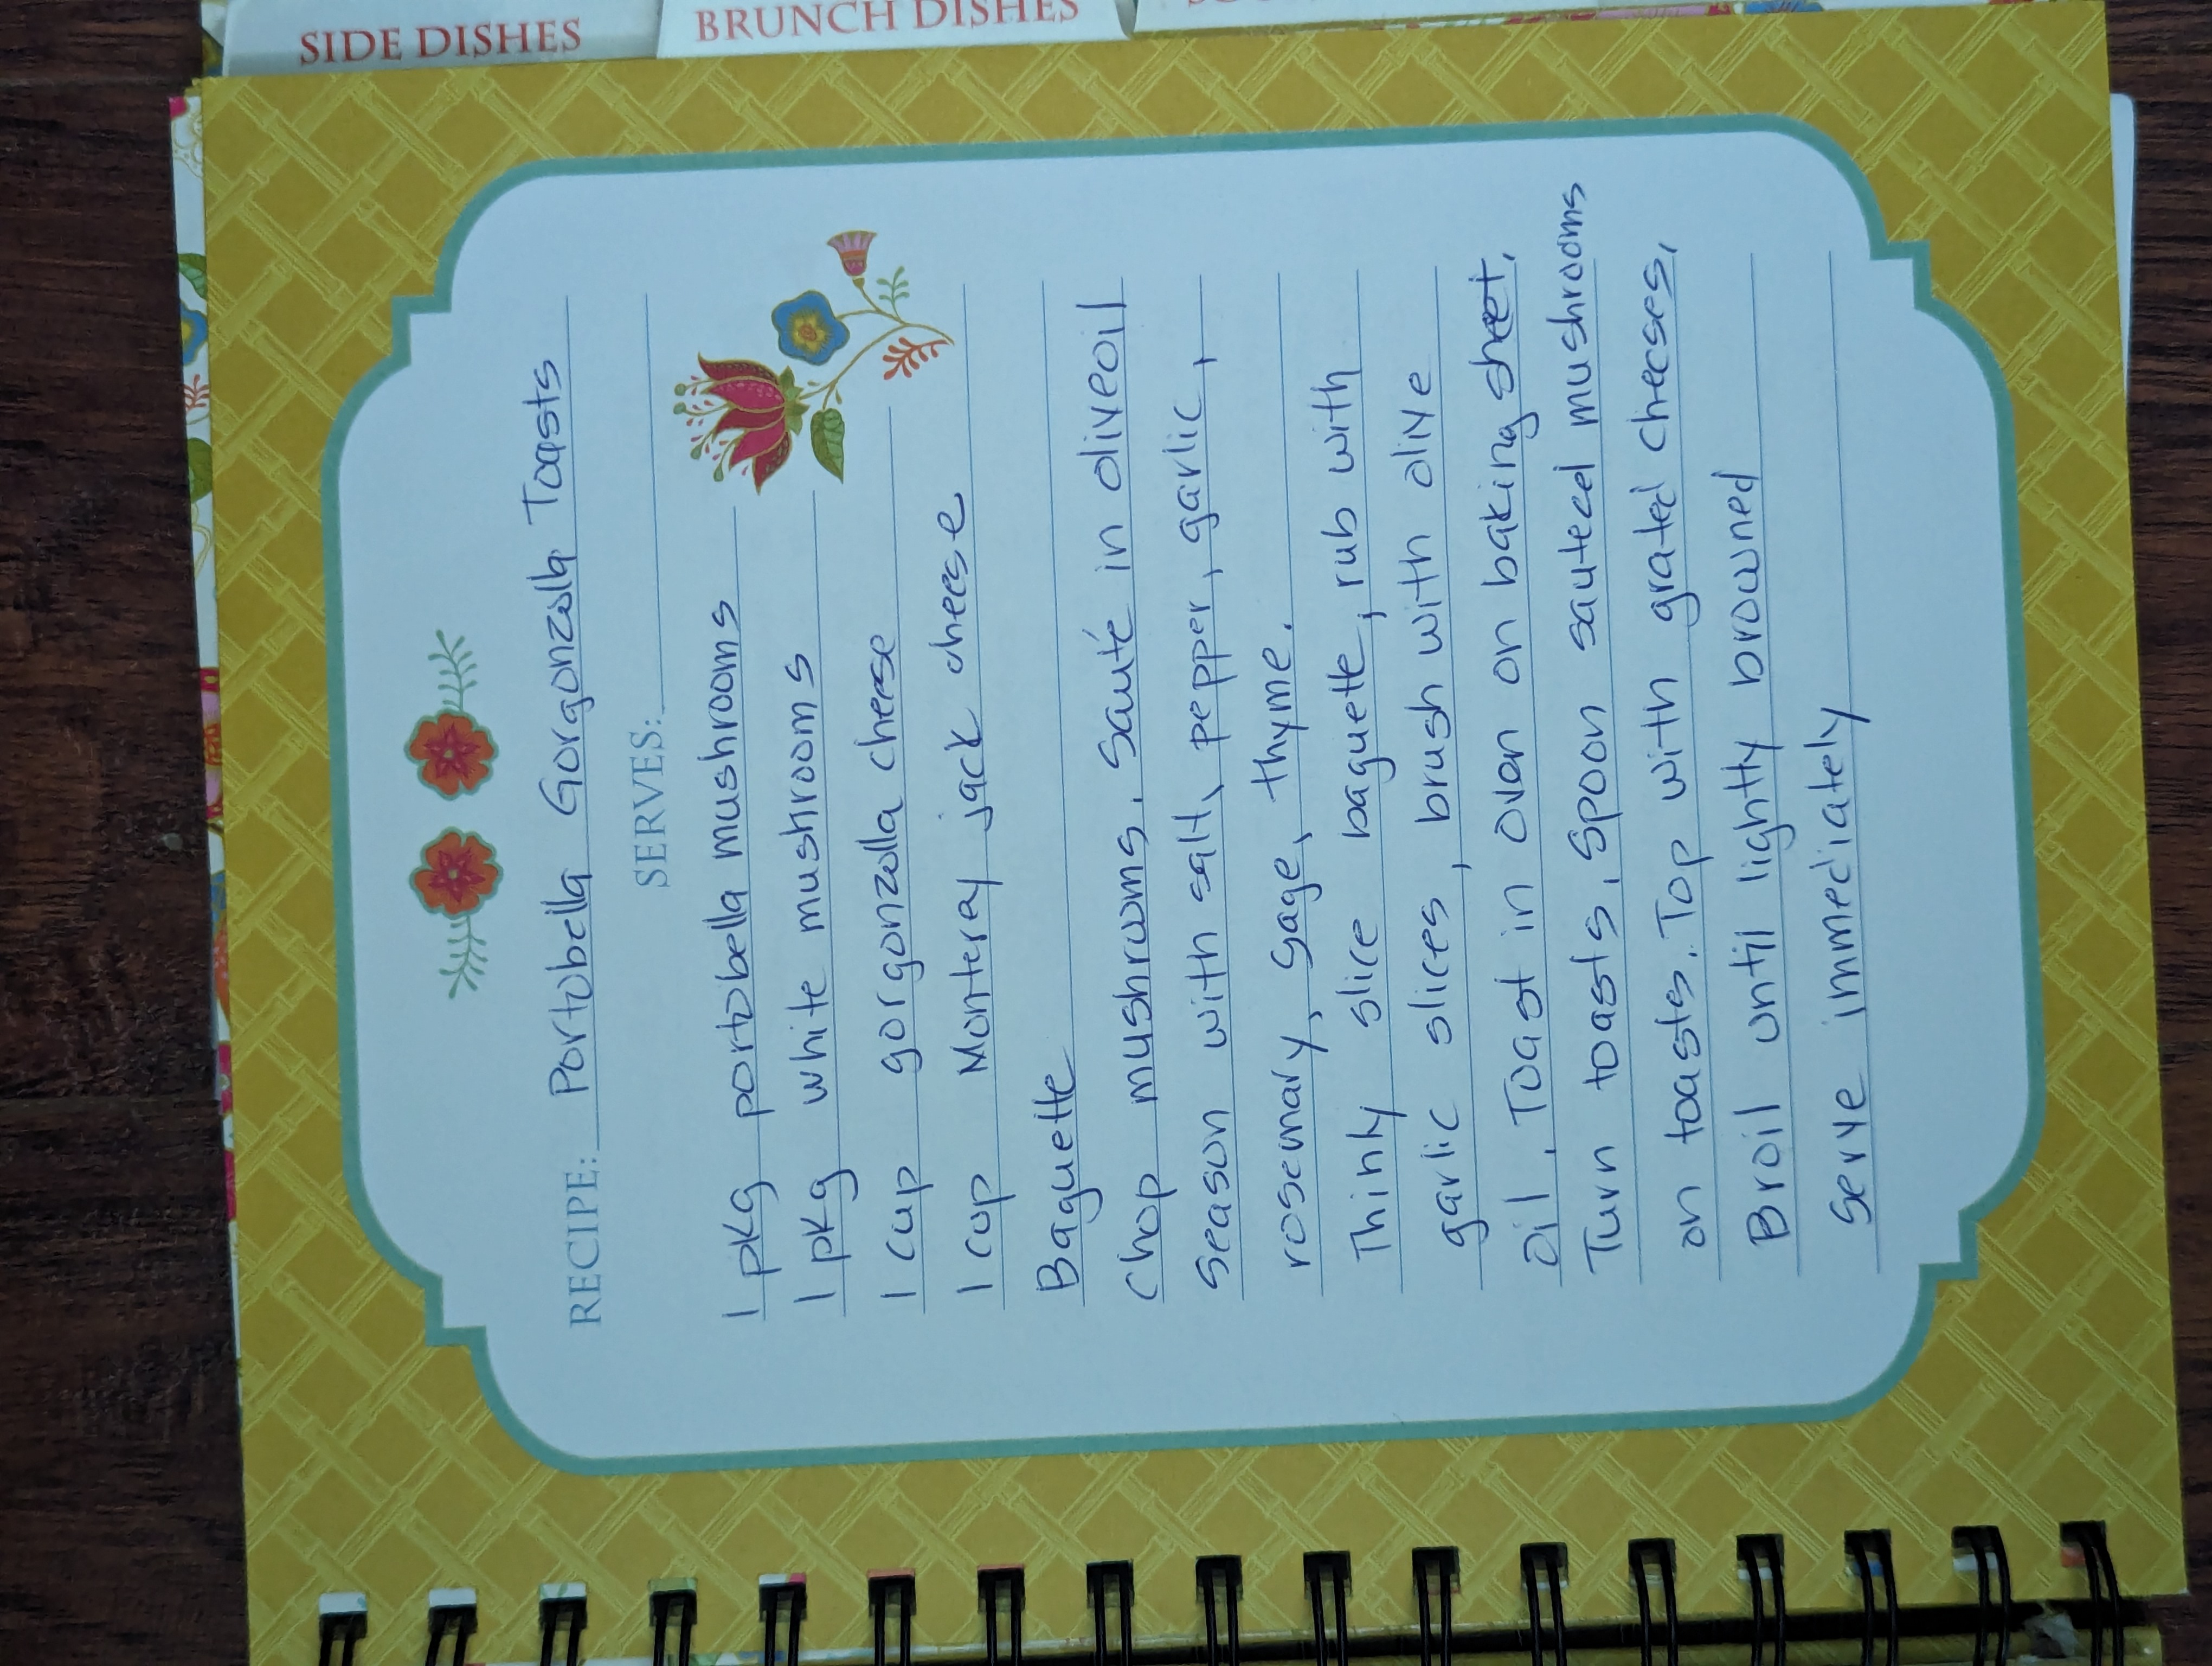 SIDE DISHES
BRUNCH DISHES
RECIPE: Portobella Gorgonzolla Toasts
SERVES:
1 pkg portobella mushrooms
1 pkg white mushrooms
1 cup gorgonzolla cheese
1 cup Monteray jack cheese
Baguette
Chop mushrooms. Sauté in olive oil
Season with salt, pepper, garlic,
rosemary, sage, thyme.
Thinly slice baguette, rub with
garlic slices, brush with olive
oil. Toast in oven on baking sheet.
Turn toasts. Spoon sauteed mushrooms
on toasts. Top with grated cheeses.
Broil until lightly browned
Serve immediately